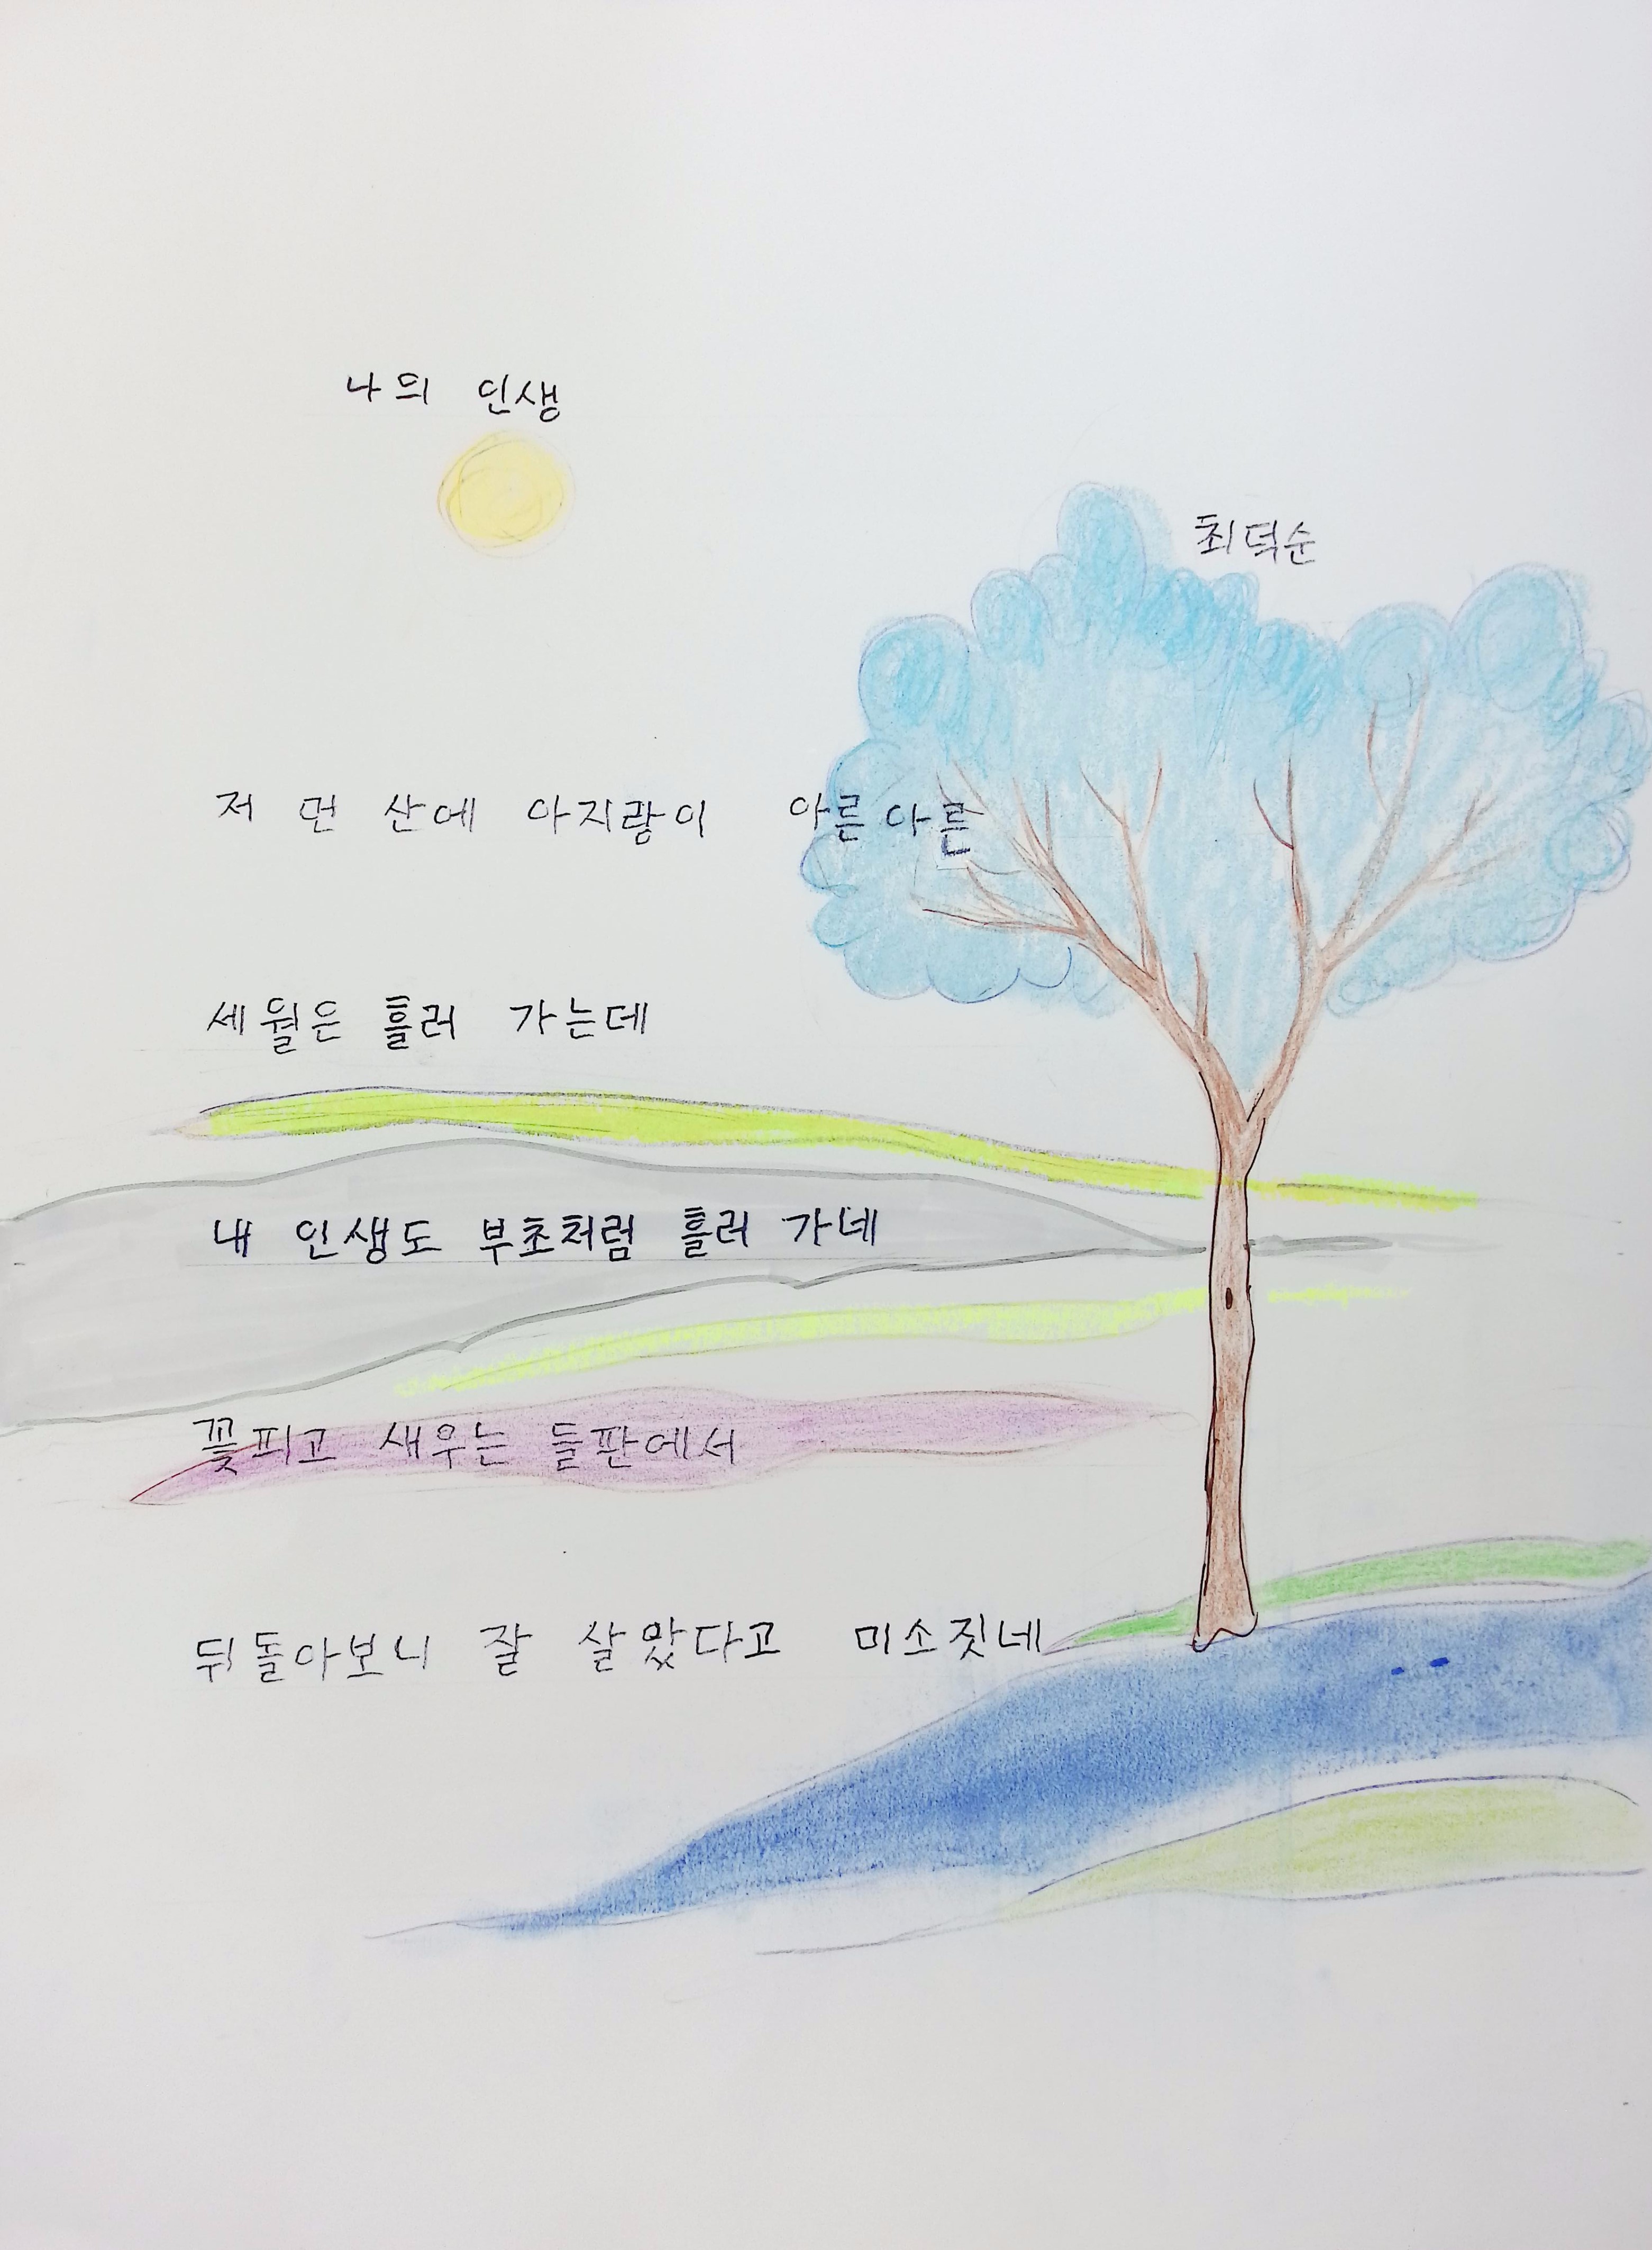 나의 인생
최덕순
저 먼 산에 아지랑이 아른아른
세월은 흘러 가는데
내 인생도 부초처럼 흘러 가네
꽃피고 새우는 들판에서
뒤돌아보니 잘 살았다고 미소짓네